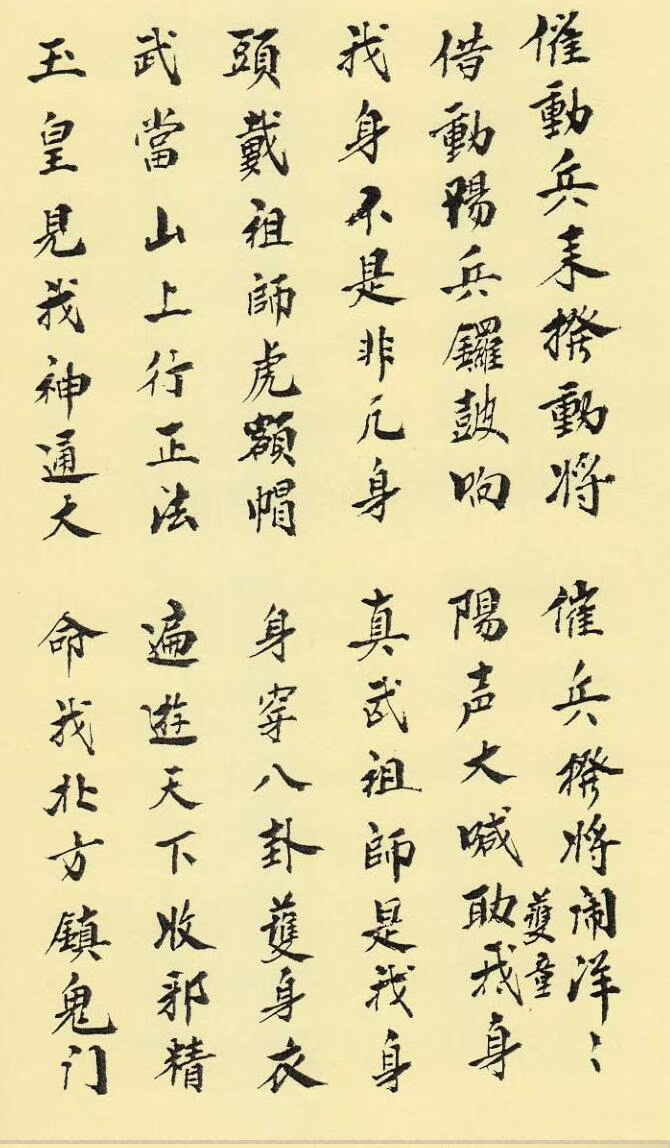 催動兵来撥動将 催兵撥将闹洋〻
借動陽兵鑼鼓响 陽声大喊助我身
蒦童
我身不是非凡身 真武祖師是我身
頭戴祖師虎額帽 身穿八卦蒦身衣
武當山上行正法 遍遊天下收邪精
玉皇見我神通大 命我北方鎮鬼门